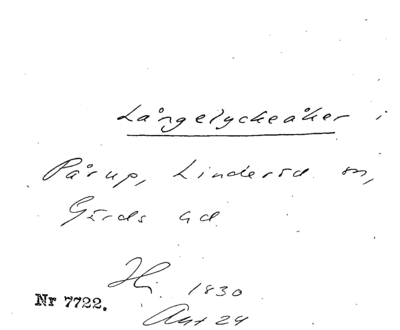 Långelyckeåker i
Pårup, Linderöd sn,
Gärds hd
Hj. 1830
Akt 24
Nr 7722.